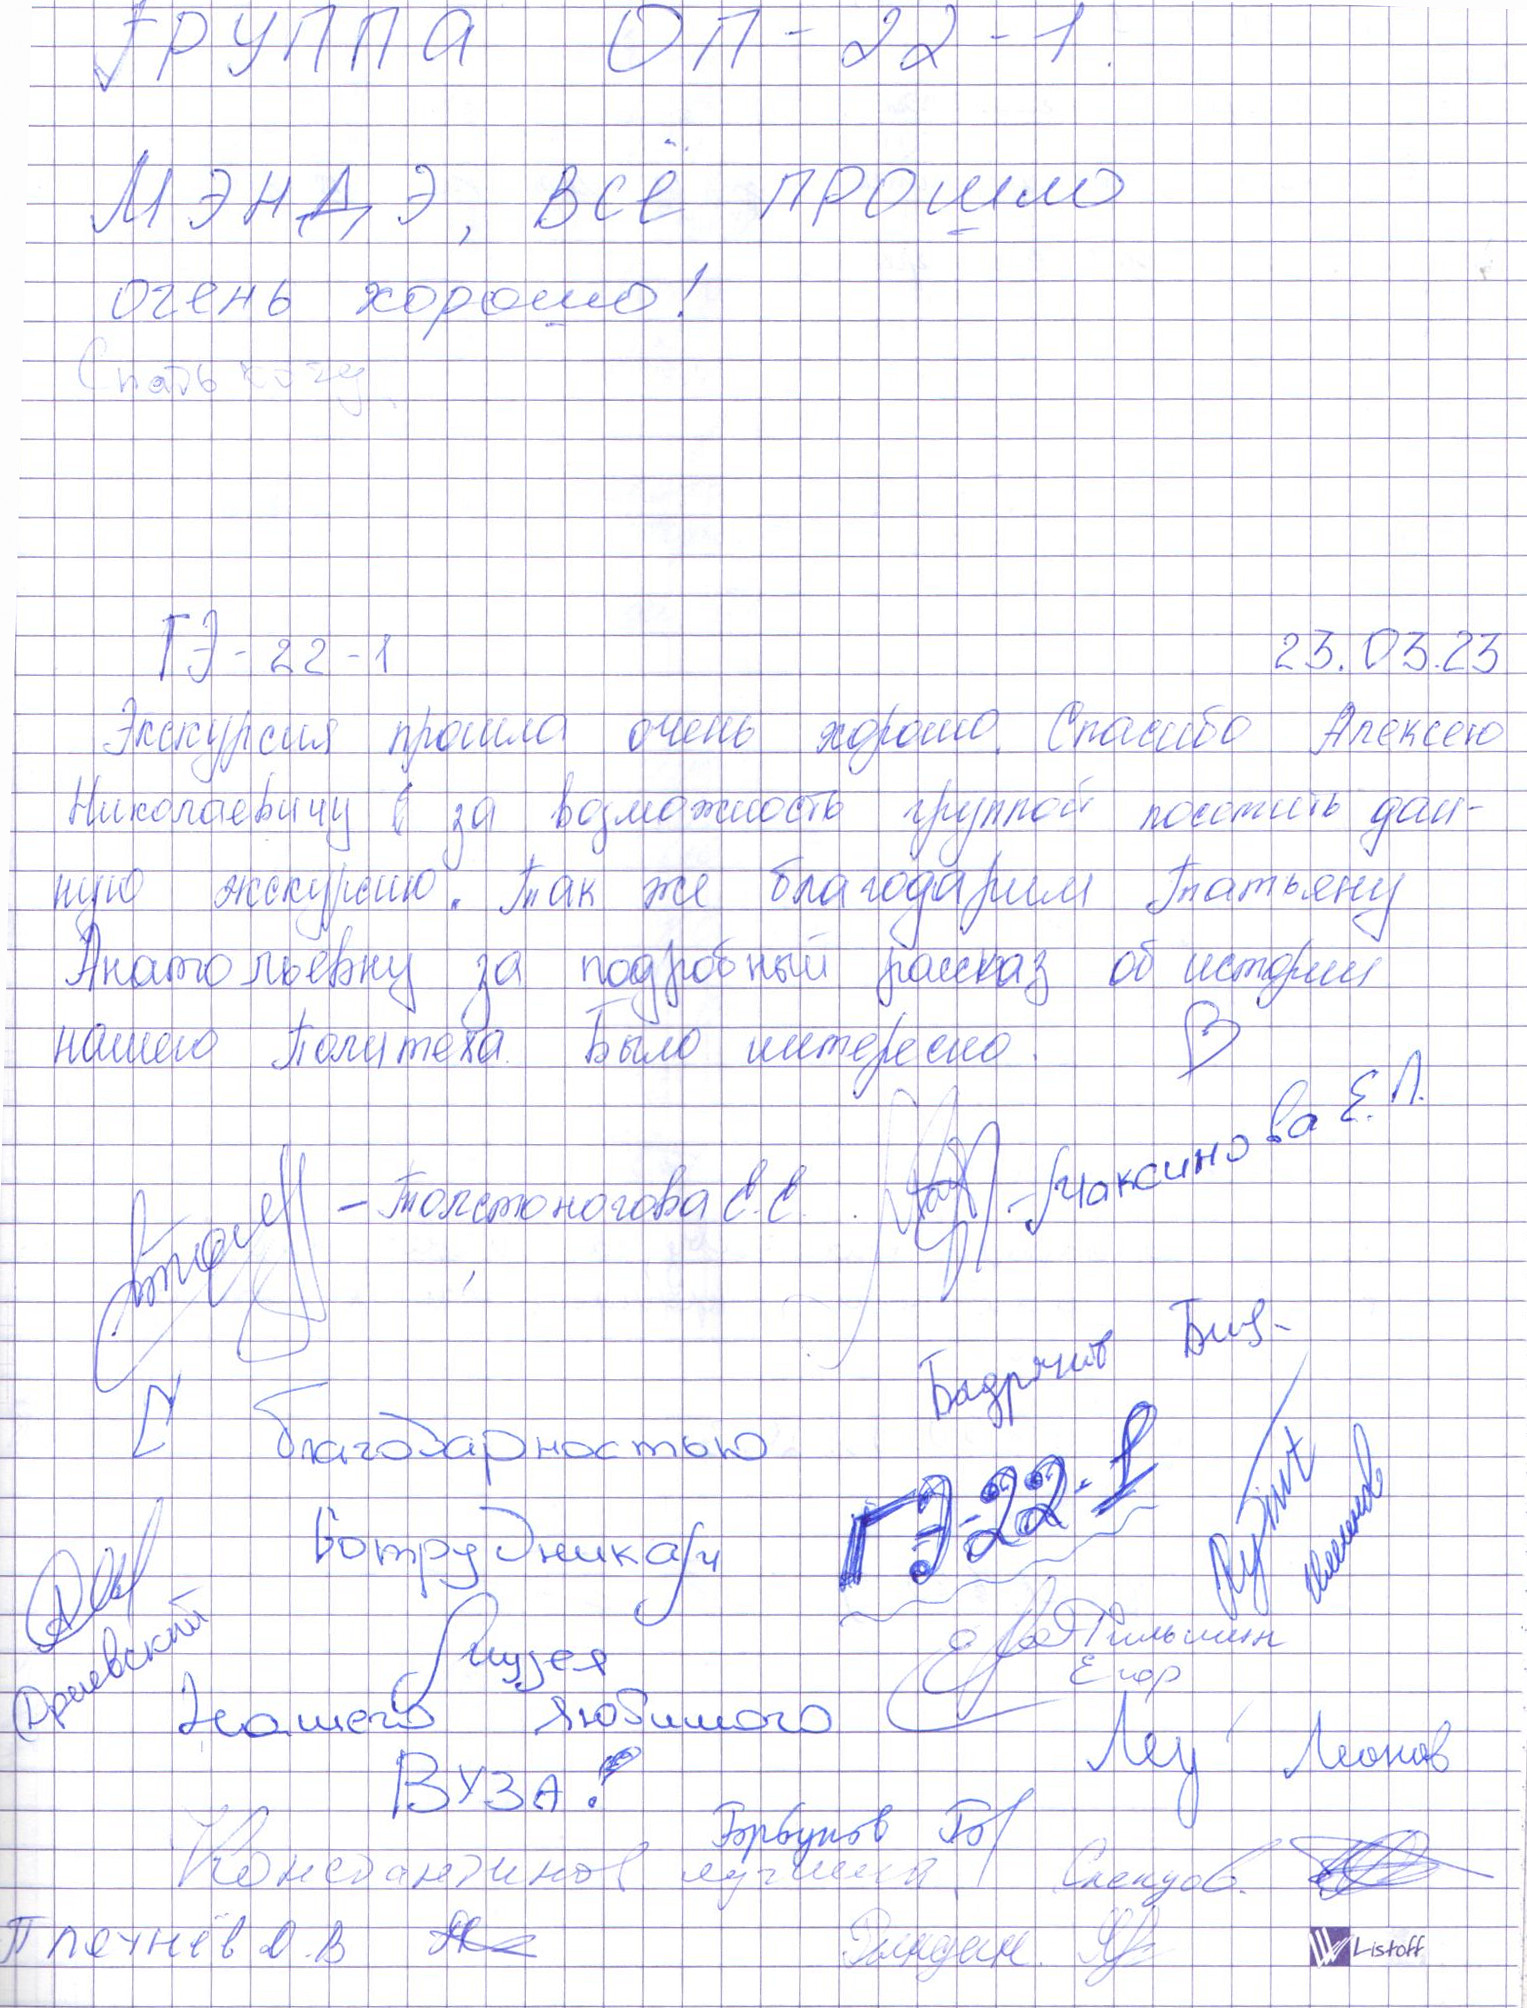 ГРУППА ОП-22-1.
МЭНДЭ, ВСЁ ПРОШЛО
очень хорошо!
Спать хочу.
ГЭ-22-1
23.03.23
Экскурсия прошла очень хорошо. Спасибо Алексею
Николаевичу за возможность группой посетить дан-
ную экскурсию. Так же благодарим Татьяну
Анатольевну за подробный рассказ об истории
нашего Политеха. Было интересно.
- Толстоногова Е.Е.
- Максимова Е.Л.
С благодарностью
Сотрудникам
Музея
Нашего любимого
ВУЗА!
ГЭ-22-1
Пильшин
Егор
Леонов
Горбунов
Константинов лучший!
Плечнёв О.В
Listoff